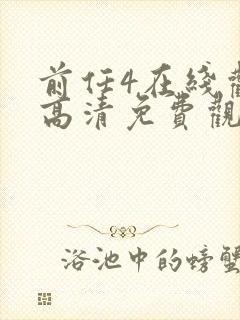 前任4在线
高清免費觀
浴池中的螃蟹